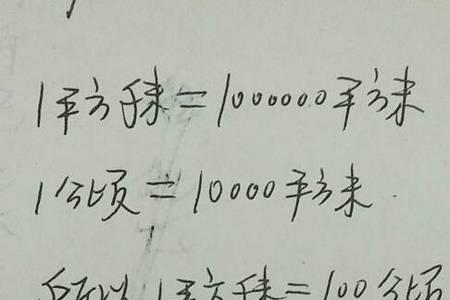 1平方千米=1000000平方米
1公顷=10000平方米.
所以1平方千米=100公顷